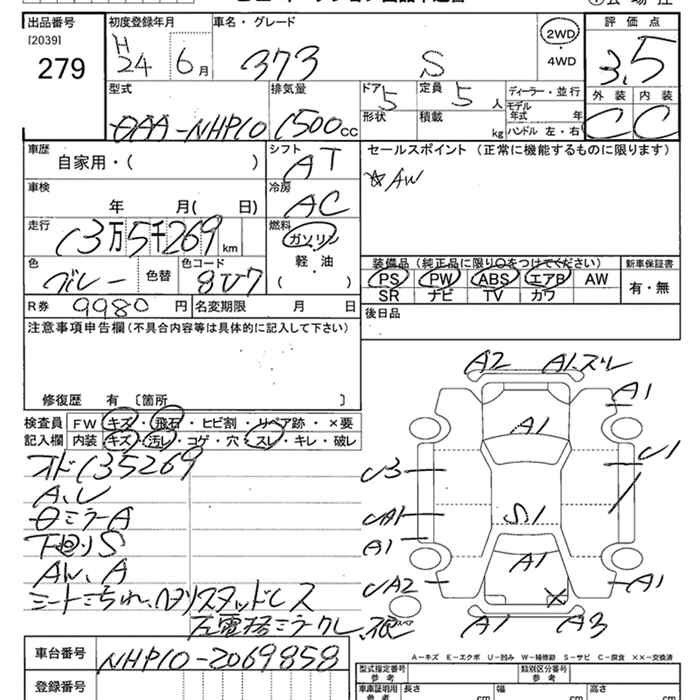 出品番号 初度登録年月 車名・グレード 2WD 評価点
[2039] H 24 6月 373 S ・ 3.5
279 4WD
型式 排気量 ドア 5 定員 5人 ディーラー・並行 外装 内装
DAA-NHP10 1500cc 形状 積載 kg モデル年式 年 C C
ハンドル 左・右
車歴 シフト セールスポイント (正常に機能するものに限ります)
自家用・( ) AT ☆AW
車検 冷房
年 月( 日) AC
走行 燃料
13万5千269km ガソリン
色 色替 色コード 軽・油 装備品(純正品に限り○をつけてください) 新車保証書
グレー 8V7 ( ) PS PW ABS エアB AW 有・無
R券 9980円 名変期限 月 日 SR ナビ TV カワ
注意事項申告欄(不具合内容等は具体的に記入して下さい) 後日品
修復歴 有 〔箇所 〕
検査員 FW キズ・飛石・ヒビ割・リペア跡・×要
記入欄 内装 キズ・汚レ・コゲ・穴・スレ・キレ・破レ
オド135269
A、U
日ミラーA
下廻りS
AW、A
A2 A1.ズレ
A1
A1
U3 U1
UA1 S.1
A1
A1
UA2 A1
A1 A3
A-キズ E-エクボ U-凹み W-補修跡 S-サビ C-腐食 ××-交換済
車台番号 NHP10-2069858
登録番号
型式指定番号 類別区分番号
参考 参考
車庫証明用 長さ 幅 高さ
参考 cm cm cm